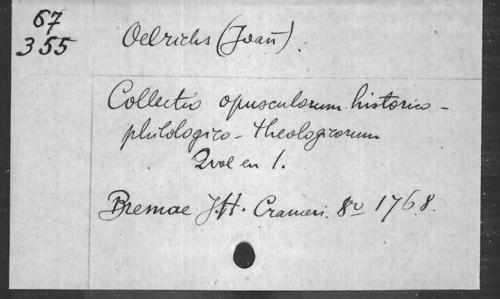 67
355
Oelrichs (Joan̄).
Collectio opusculorum historico-
philologico-theologicorum
2 vol en 1.
Bremae J.H. Crameri. 8º 1768.